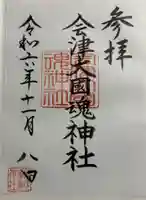 参拝
会津大國魂神社
令和六年十一月八日